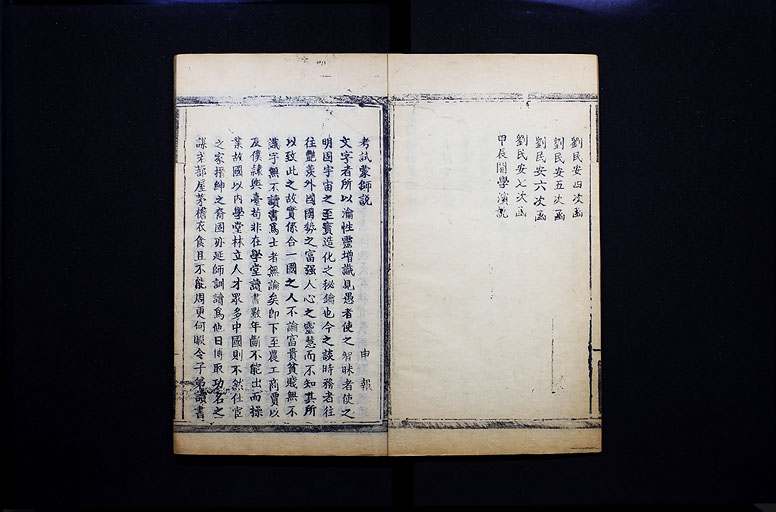 劉民安四次函
劉民安五次函
劉民安六次函
劉民安七次函
甲辰開學演說
考試蒙師說　申報
文字者所以瀹性靈增識見愚者使之智昧者使之
明國宇宙之至寶造化之秘鑰也今之談時務者往
往艷羨外國國勢之富强人心之靈慧而不知其所
以致此之故實係合一國之人不論富貴貧賤無不
識字無不讀書爲士者無論矣即下至農工商賈以
及僕隸輿臺苟非在學堂讀書數年斷不能出而操
業故國以內學堂林立人才眾多中國則不然仕宦
之家搢紳之裔固亦延師訓讀爲他日博取功名之
謀若蔀屋茅檐衣食且不能周更何暇令子弟讀書